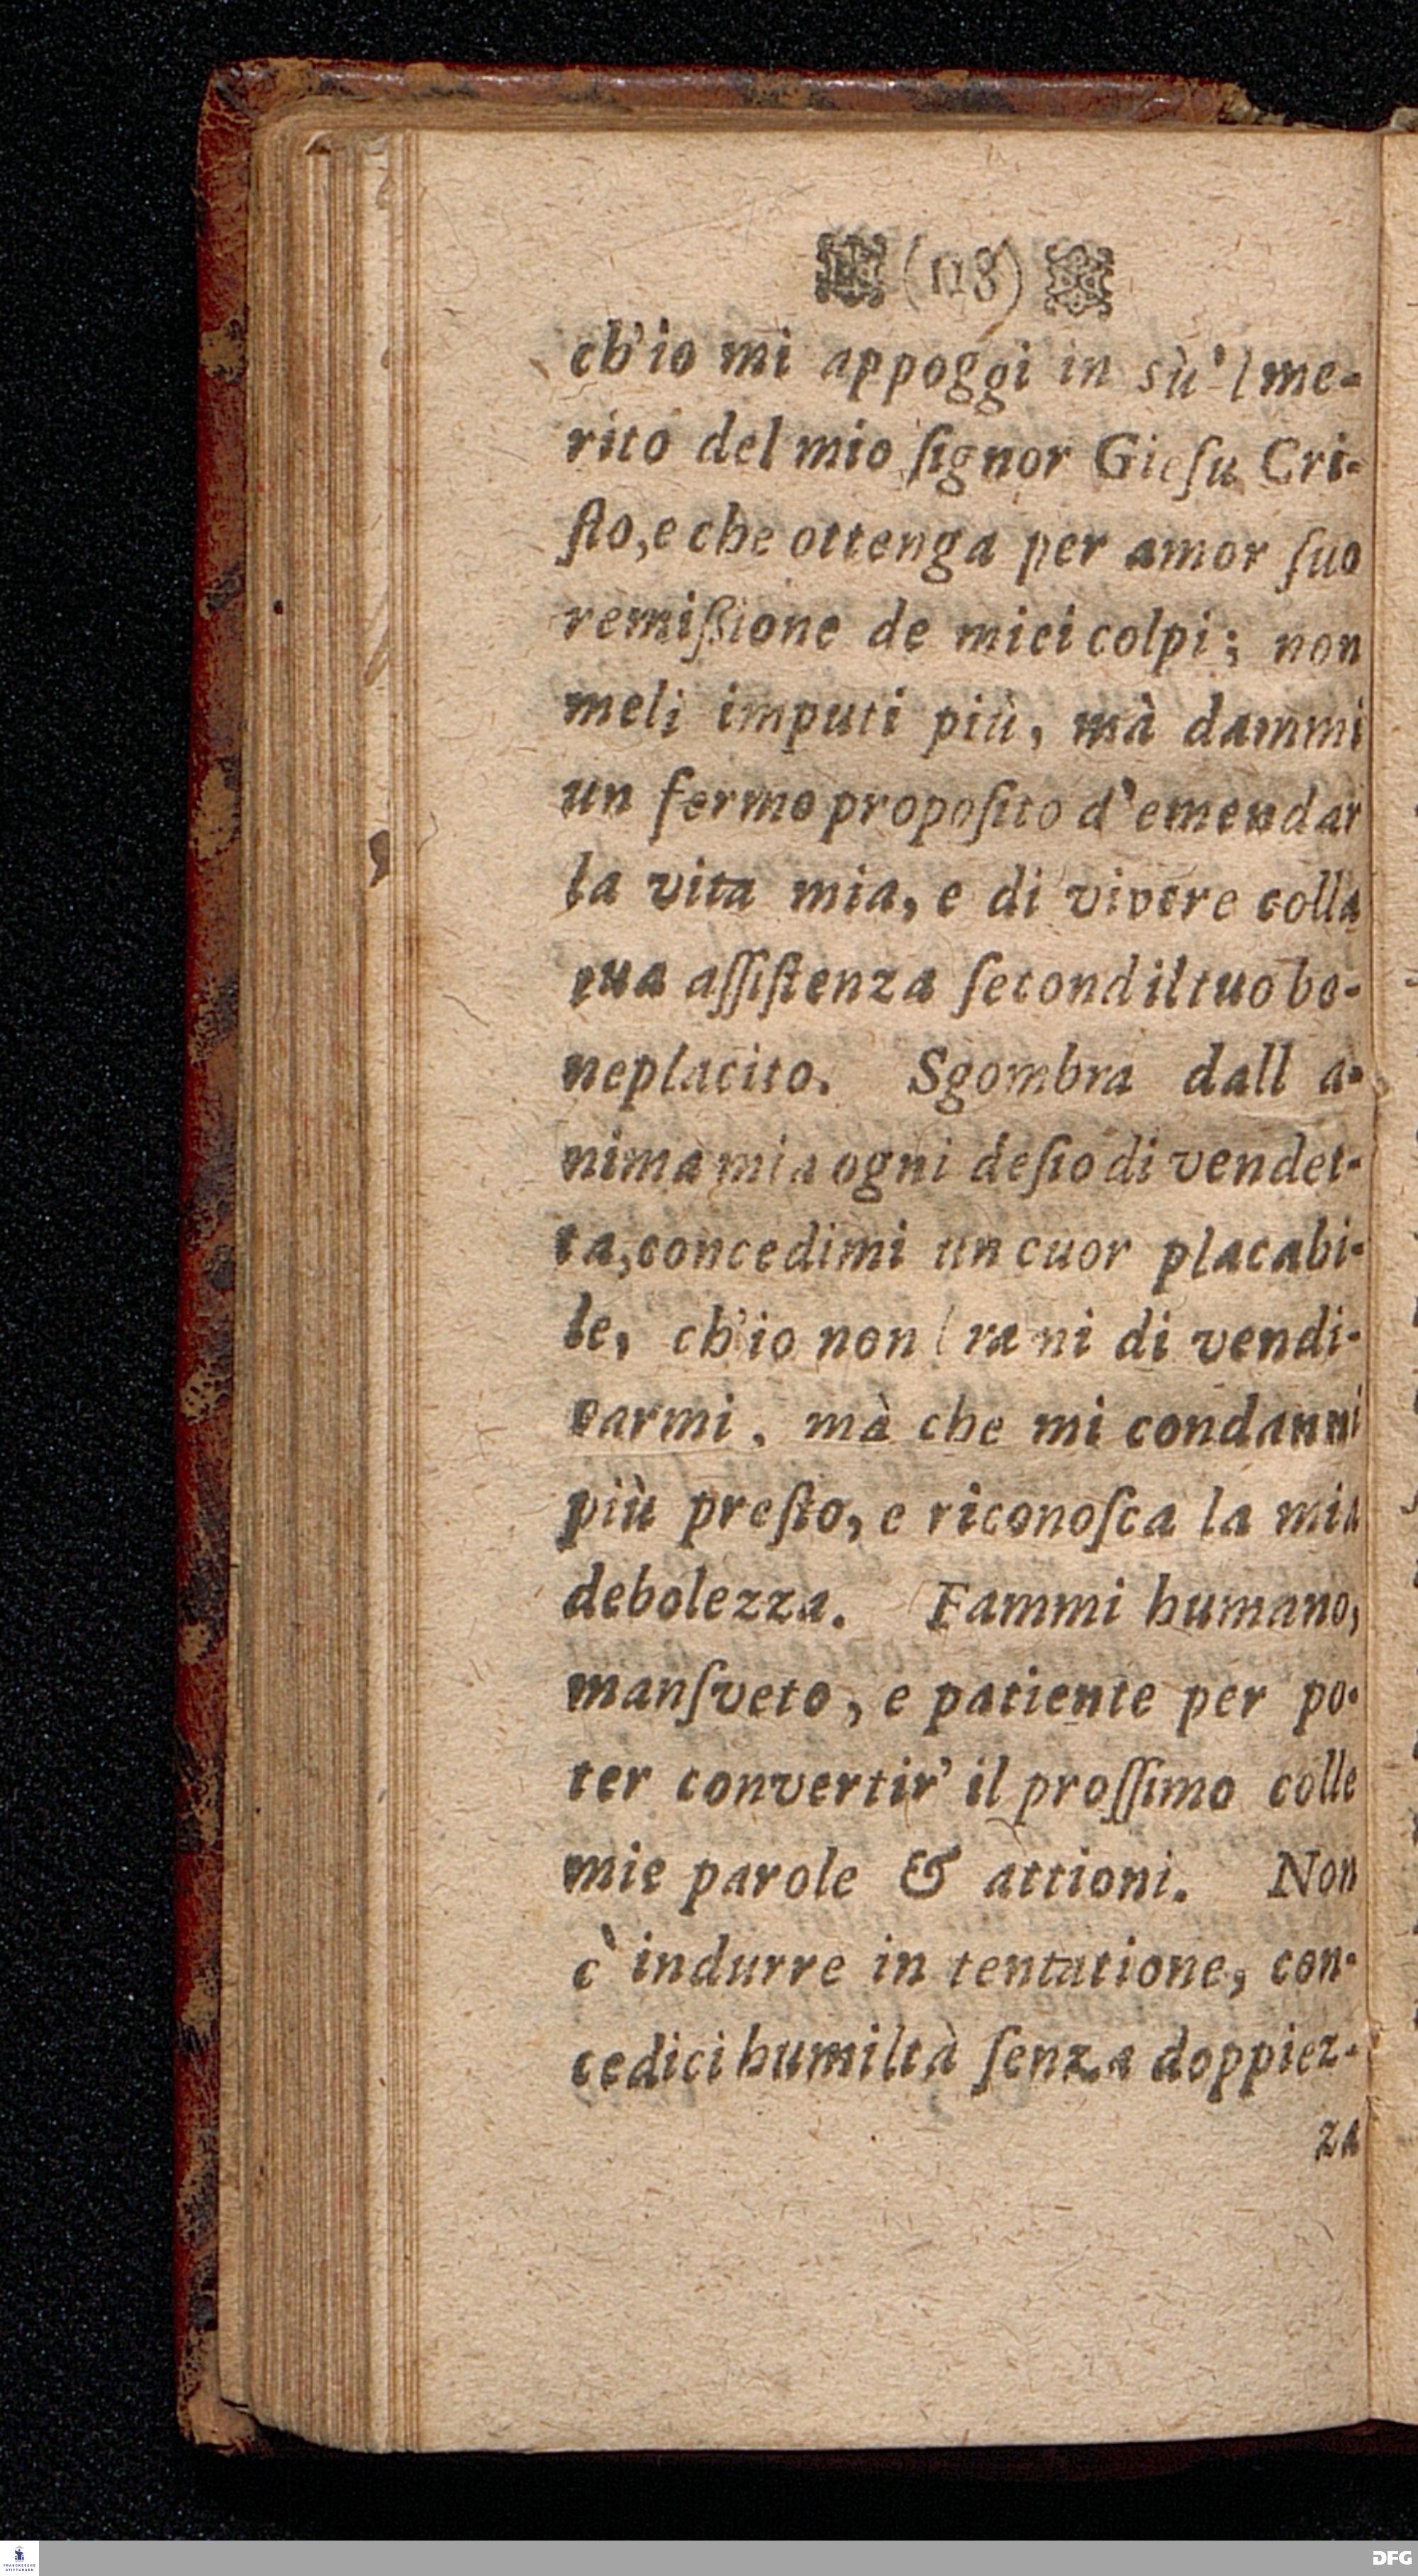 (118)
ch'io mi appoggi in sù'l me-
rito del mio ſignor Gieſu Cri-
ſto, e che ottenga per amor ſuo
remiſſione de miei colpi; non
meli imputi più, mà dammi
un fermo propoſito d'emendar
la vita mia, e di vivere colla
tua aſſiſtenza ſecond il tuo be-
neplacito. Sgombra dall a-
nima mia ogni deſio di vendet-
ta, concedimi un cuor placabi-
le, ch'io non di vendi-
carmi, mà che mi condanni
più preſto, e riconoſca la mia
debolezza. Fammi humano,
manſveto, e patiente per po-
ter convertir' il proſſimo colle
mie parole & attioni. Non
c' indurre in tentatione, con-
cedici humiltà ſenza doppiez-
za
FRANCKESCHE
STIFTUNGEN
DFG